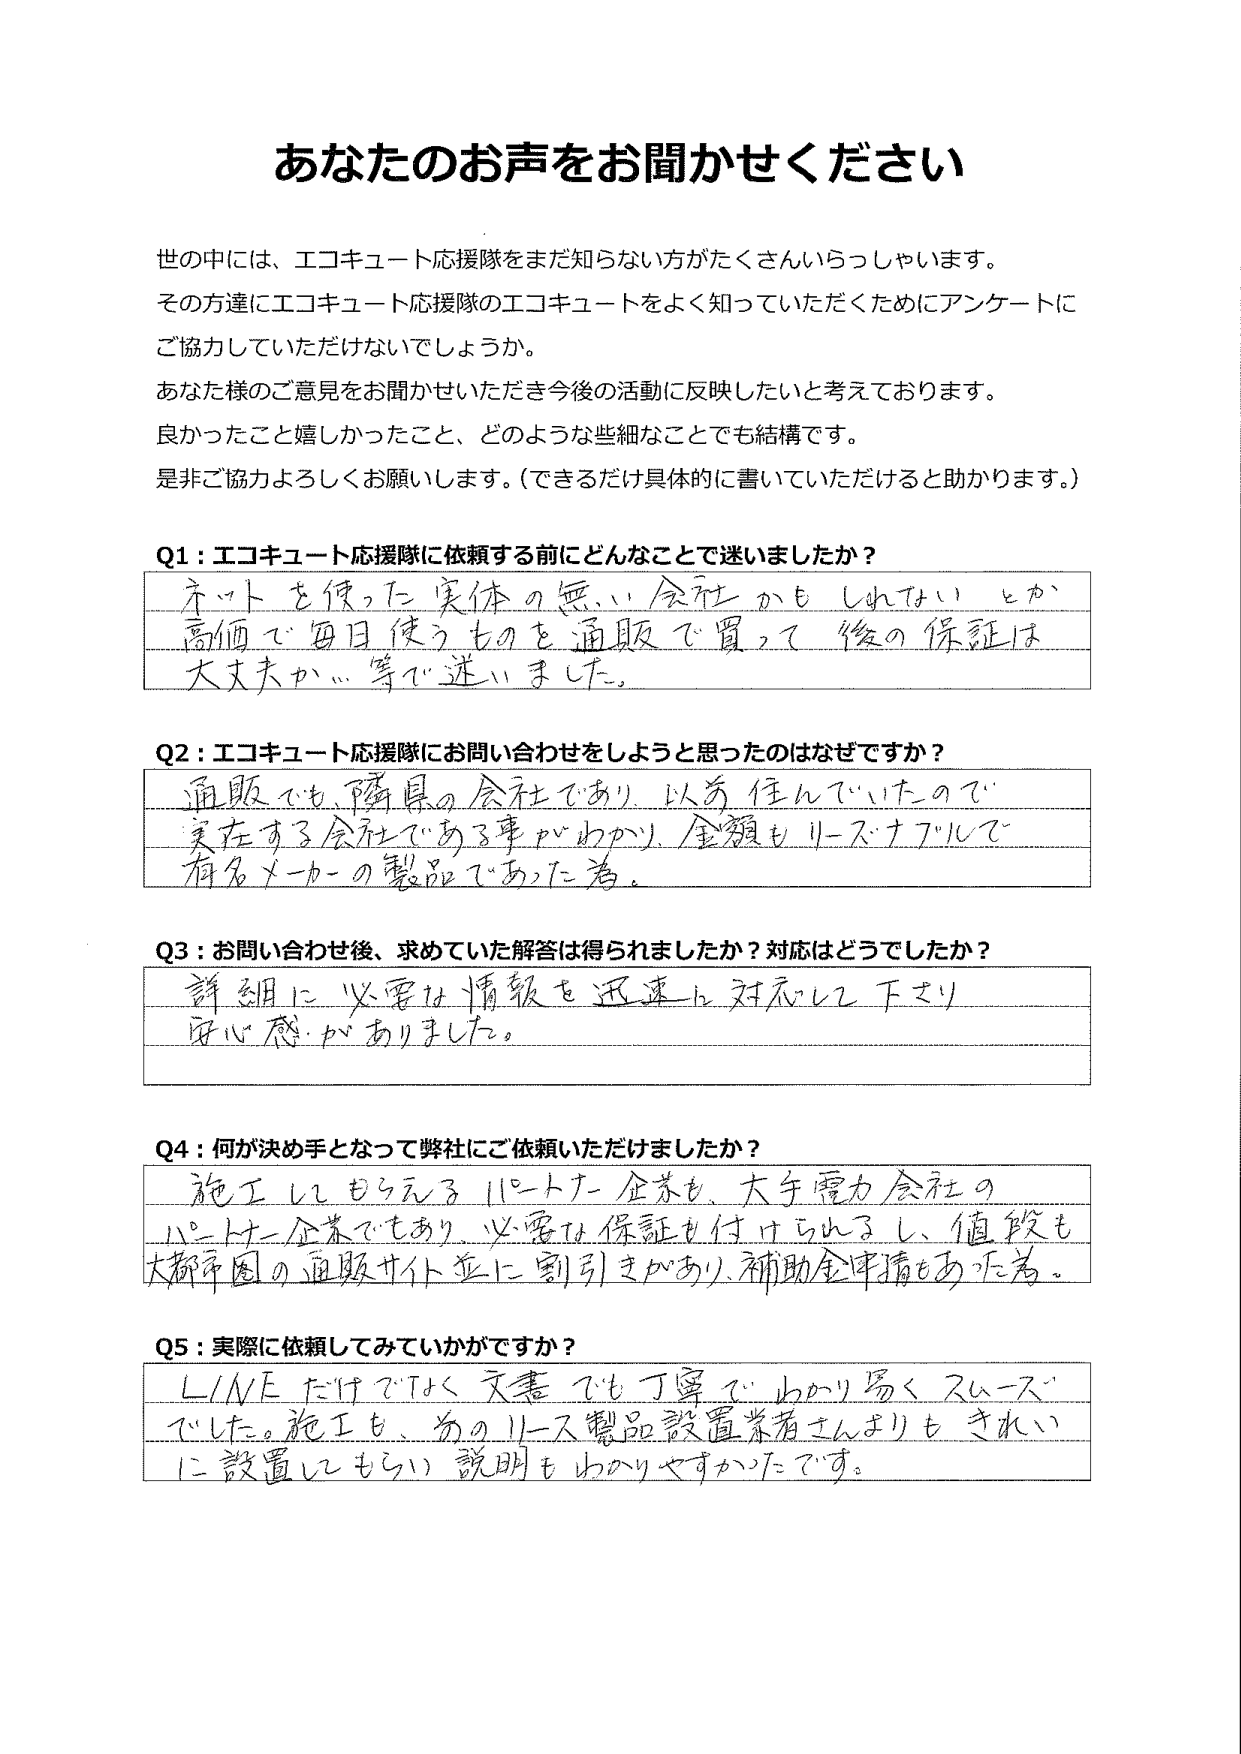 あなたのお声をお聞かせください
世の中には、エコキュート応援隊をまだ知らない方がたくさんいらっしゃいます。
その方達にエコキュート応援隊のエコキュートをよく知っていただくためにアンケートに
ご協力していただけないでしょうか。
あなた様のご意見をお聞かせいただき今後の活動に反映したいと考えております。
良かったこと嬉しかったこと、どのような些細なことでも結構です。
是非ご協力よろしくお願いします。(できるだけ具体的に書いていただけると助かります。)
Q1：エコキュート応援隊に依頼する前にどんなことで迷いましたか？
ネットを使った実体の無い会社かもしれないとか
高価で毎日使うものを通販で買って 後の保証は
大丈夫か… 等で迷いました。
Q2：エコキュート応援隊にお問い合わせをしようと思ったのはなぜですか？
通販でも、隣県の会社であり、以前住んでいたので
実在する会社である事がわかり、金額もリーズナブルで
有名メーカーの製品であった為。
Q3：お問い合わせ後、求めていた解答は得られましたか？対応はどうでしたか？
詳細に必要な情報を迅速に対応して下さり
安心感がありました。
Q4：何が決め手となって弊社にご依頼いただけましたか？
施工してもらえるパートナー企業も、大手電力会社の
パートナー企業でもあり、必要な保証も付けられるし、値段も
大都市圏の通販サイト並に割引きがあり、補助金申請もあった為。
Q5：実際に依頼してみていかがですか？
LINEだけでなく文書でも丁寧でわかり易くスムーズ
でした。施工も、前のリース製品設置業者さんよりもきれい
に設置してもらい説明もわかりやすかったです。